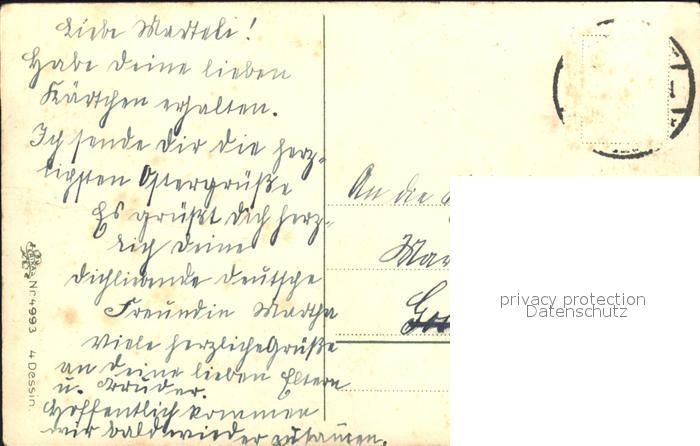 Liebe Marteli!
Habe deine lieben
Kärtchen erhalten.
Ich sende dir die herz-
ligsten Ostergrüße
Es grüßt dich herz-
lich deine
dichliebende deutsche
Freundin Martha
Viele herzliche Grüße
an deine lieben Eltern
u. Bruder.
Hoffentlich kommen
wir bald wieder zusammen.
An die
Nr. 4993 4 Dessin.
privacy protection
Datenschutz